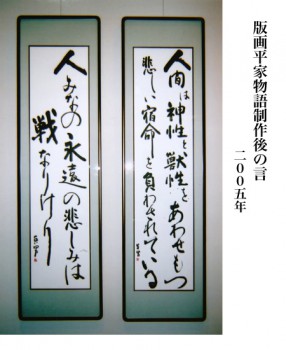 版画平家物語制作後の言
二〇〇五年
人間は神性と獣性をあわせもつ
悲しい宿命を負わされている
人みなの永遠の悲しみは
戦なりけり